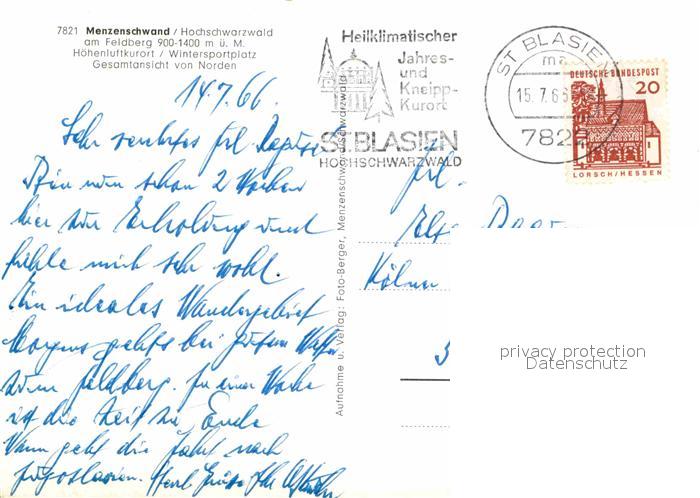 7821 Menzenschwand / Hochschwarzwald
am Feldberg 900-1400 m ü. M.
Höhenluftkurort / Wintersportplatz
Gesamtansicht von Norden
14.7.66.
Sehr verehrtes Frl.
Bin nun schon 2 Wochen
hier zur Erholung und
fühle mich sehr wohl.
Ein ideales Wandergebiet
Morgen gehts bei gutem Wetter
zum Feldberg. In einer Woche
ist die Zeit zu Ende
Dann geht die Fahrt nach
Jugoslawien. Herzl. Grüße Ihr
Aufnahme u. Verlag: Foto-Berger, Menzenschwand/Schwarzwald
Heilklimatischer
Jahres-
und
Kneipp-
Kurort
ST. BLASIEN
HOCHSCHWARZWALD
ST BLASIEN
ma
15.7.66
7822
DEUTSCHE BUNDESPOST
20
LORSCH/HESSEN
Frl.
Köln
privacy protection
Datenschutz